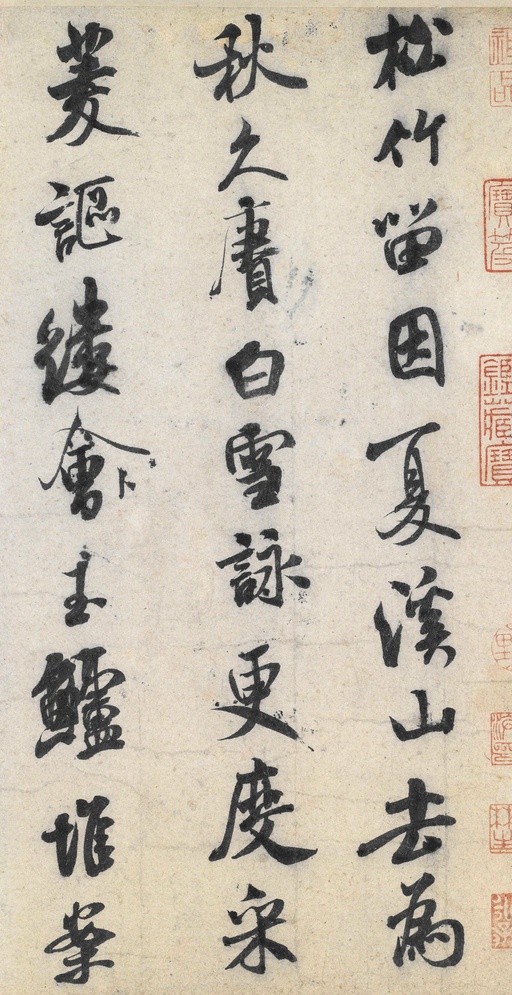 松竹留因夏溪山去為
秋久賡白雪詠更度采
菱謳縷會玉鱸堆案